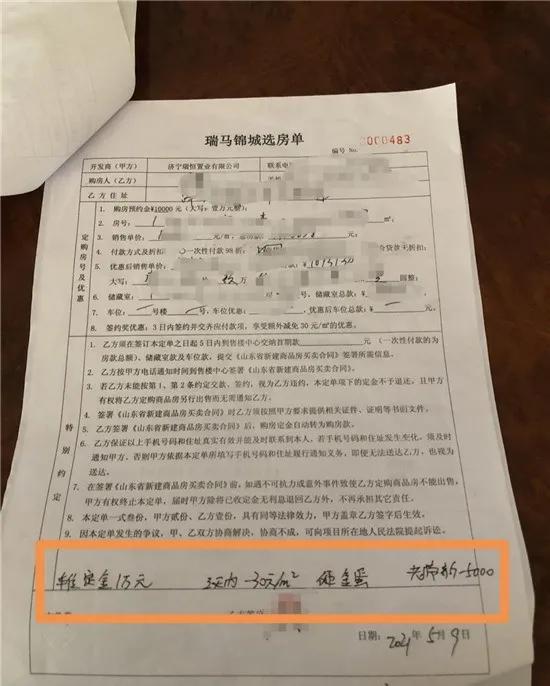 瑞马锦城选房单
编号 No. 0000483
开发商（甲方） 济宁瑞恒置业有限公司 联系电
购房人（乙方）
乙方住址
定购房号及优惠
1. 购房预约金¥10000元（大写：壹万元整）
2. 房号：
3. 销售单价：
4. 付款方式及折扣 一次性付款98折；
5. 优惠后销售单价：
大写： 万
6. 储藏室： 号，储藏室总款：¥
7. 车位： 号楼 号，车位优惠： 优惠后车位总款：¥
8. 签约奖优惠：3日内签约并交齐应付款项，享受额外减免30元/㎡的优惠。
特别约定
1. 乙方须在签订本定单之日起5日内到售楼中心交纳首期款 元（一次性付款的为
房款总额）、储藏室款及车位款，提交《山东省新建商品房买卖合同》签署所需信息。
2. 乙方按甲方电话通知时间到售楼中心签署《山东省新建商品房买卖合同》。
3. 若乙方未能按第1、第2条约定交款、签约，视为乙方违约，本定单项下的定金不予退还，且甲方
有权将乙方定购商品房另行出售而无需通知乙方。
4. 签署《山东省新建商品房买卖合同》时乙方须按照甲方要求提供相关证件、证明等书面文件。
5. 乙方签署《山东省新建商品房买卖合同》后，购房定金自动转为购房款。
6. 乙方保证以上手机号码和住址真实有效并能及时联系到本人，若手机号码和住址发生变化，须及时
通知甲方，否则甲方依据本定单所填写手机号码和住址履行通知义务，即便无法送达乙方，也视为
送达。
7. 在签署《山东省新建商品房买卖合同》前，如遇不可抗力或意外事件致使乙方定购商品房不能出售，
甲方有权终止本定单，届时甲方除将已收定金无利息退回乙方外，不再承担其它责任。
8. 本定单一式叁份，甲方贰份、乙方壹份，具有同等法律效力，甲方盖章乙方签字后生效。
9. 因本定单发生的争议，甲、乙双方协商解决，协商不成，可向项目所在地人民法院提起诉讼。
定金1万元 3天内-30元/m² 砸金蛋 老带新-5000
日期：2021年5月9日